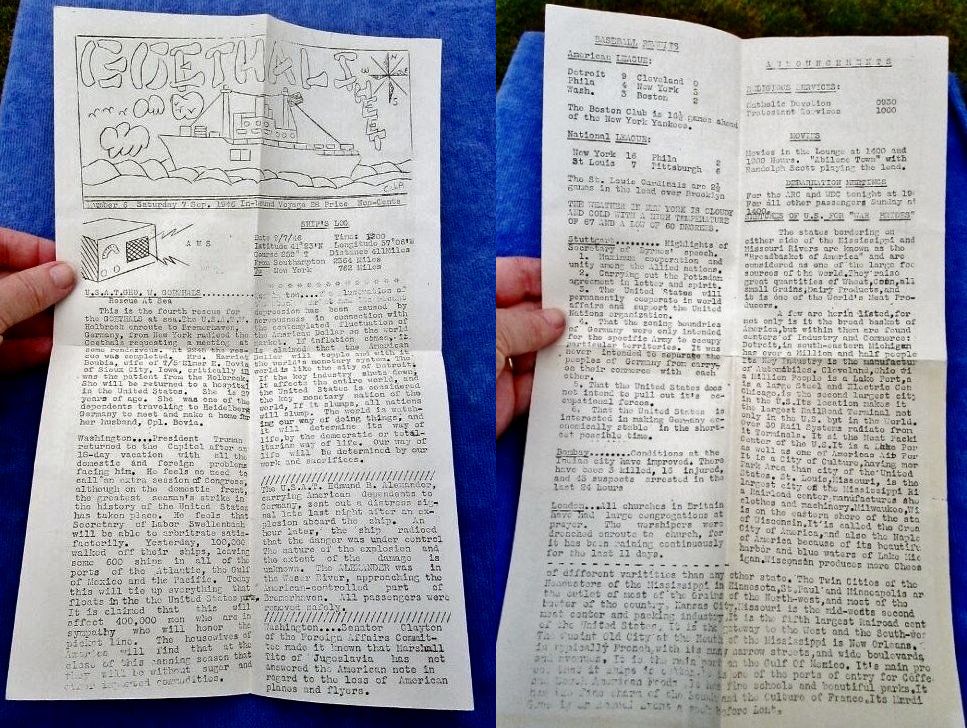 GOETHALS
NEWS
Number 6 Saturday 7 Sep. 1946 In-bound Voyage 28 Price Non-Cents
A M S
SHIP'S LOG
Date 9/7/46 Time: 1200
Latitude 41°53'N Longitude 57°06'W
Course 252° T Distance 411Miles
From Southampton 2364 Miles
To New York 762 Miles
U.S.A.T.GEO. W. GOETHALS
Rescue At Sea
This is the fourth rescue for
the GOETHALS at sea.The U.S.A.T.
Holbrook enroute to Bremerhaven,
Germany, from New York radioed the
Goethals requesting a meeting at
was completed. Mrs. Harriet
Boubia, wife of Cpl W. D. Bovia
of Sioux City, Iowa, critically ill
was the patient from the Holbrook.
She will be returned to a hospital
in the United States. She is 27
years of age. She was one of the
dependents traveling to Heidelberg
Germany to meet and make a home for
her husband, Cpl. Bovia.
Washington....President Truman
returned to the Capitol after an
18-day vacation with all the
domestic and foreign problems
facing him. He feels no need to
call an extra session of Congress,
although on the domestic front,
the greatest seaman's strike in
the history of the United States
has taken place. He feels that
Secretary of Labor Swellenbach
will be able to arbitrate satis-
factorily. Yesterday, 100,000
walked off their ships, leaving
some 600 ships in all of the
ports of the Atlantic, the Gulf
of Mexico and the Pacific. Today
this will tie up everything that
floats in the United States
It is claimed that this will
effect 400,000 men who are in
sympathy who will honor the
picket line. The housewives of
America will find that at the
close of this canning season that
they will be without sugar and
other imported commodities.
depression has been caused by
nervousness in connection with
the contemplated fluctuation of
the American dollar on the world
market. If inflation comes, it
is claimed that the American
dollar will topple and with it
the world monetary system. The
world is like the city of Detroit.
If the key industry shuts down,
it affects the entire world, and
the United States is considered
the key monetary nation of the
world, If it slumps, all nations
will slump. The world is watch-
ing our way of doing things, and
it will determine its way of
life,by the democratic or total-
itarian way of life. Our way of
life will be determined by our
work and sacrifices.
The U.S.A.T. Edmund B. Alexander,
carrying American dependents to
Germany, sent out a distress sig-
nal late last night after an ex-
plosion aboard the ship. An
hour later, the ship radioed
that the danger was under control
The nature of the explosion and
the extent of the damage is
unknown. The ALEXANDER was in
the Weser River, approaching the
American-controlled part of
Bremerhaven. All passengers were
removed safely.
Washington....Senator Clayton
of the Foreign Affairs Commit-
tee made it known that Marshall
Tito of Jugoslavia has not
answered the American note in
regard to the loss of American
planes and flyers.
BASEBALL RESULTS
American LEAGUE:
Detroit 9 Cleveland 0
Phila 4 New York 3
Wash. 3 Boston 2
The Boston Club is games ahead
of the New York Yankees.
National LEAGUE:
New York 16 Phila 2
St Louis 7 Pittsburgh 6
The St. Louis Cardinals are 2½
games in the lead over Brooklyn
THE WEATHER IN NEW YORK IS CLOUDY
AND COLD WITH A HIGH TEMPERATURE
OF 67 AND A LOW OF 60 DEGREES.
Stuttgart........ Highlights of
Secretary of Byrnes' speech.
1. Maximum cooperation and
unity among the Allied nations.
2. Carrying out the Potsdam
agreement in letter and spirit.
3. The United States will
permanently cooperate in world
affairs and support the United
Nations organization.
4. That the zoning boundries
of Germany were only intended
for the specific Army to occupy
particular territories. It was
never intended to separate the
peoples of Germany from carry-
on their commerce with each
other.
5. That the United States does
not intend to pull out it's oc-
cupational forces.
6. That the United States is
interested in making Germany ec-
onomically stable in the short-
est possible time.
Bombay........Conditions at the
Indian city have improved. There
have been 3 killed, 18 injured,
and 43 suspects arrested in the
last 24 hours
London...All churches in Britain
have had large congregations at
prayer. The worshipers were
drenched enroute to church, for
it has been raining continuously
for the last 11 days
ANNOUNCEMENTS
RELIGIOUS SERVICES:
Catholic Devotion 0930
Protestant Services 1000
MOVIES
Movies in the Lounge at 1400 and
1900 Hours. "Abilene Town" with
Randolph Scott playing the lead.
DEBARKATION MEETINGS
For the ARC and UDC tonight at 19
For all other passengers Sunday at
1400.
SKETCHES OF U.S. FOR "WAR BRIDES"
The states bordering on
either side of the Mississippi and
Missouri Rivers are known as the
"Breadbasket of America" and are
considered as one of the large foo
sources of the world.They raise
great quantities of Wheat,Corn,all
small Grains,Dairy Products,and
it is one of the World's Meat Pro-
ducers.
A few are herin listed,for
not only is it the bread basket of
America,but within are found
centers of Industry and Commerce:
Detroit,in south-eastern Michigan
has over a Million and half people
Its Key Industry is the manufactur
of Automobiles. Cleveland,Ohio wi
a Million People is a Lake Port,a
is a large Steel and Electric Cen
Chicago,is the second largest city
in the U.S.Its location makes it
the largest RailRoad Terminal not
only in the U.S. but in the World.
Over 39 Rail Systems radiate from
it Terminals. It si the Meat Packi
Center of the U.S.It is a Lake Por
as well as one of American Air Por
It is a City of Culture,having mor
Park Area than city of the United
States. St. Louis,Missouri, is the
largest city of the Mississippi Ri
a Railroad center,manufactures sho
clothes and machinery.Milwaukee,Wi
is on the eastern shore of the sta
of Wisconsin.It's called the Crea
City of America,and also the Naple
of America because of its beautifu
harbor and blue waters of Lake Mic
igan.Wisconsin produces more Chees
of different varitities than any other state. The Twin Cities of the
Headwaters of the Mississippi in Minnesota,St.Paul and Minneapolis ar
the outlet of most of the Grains of the North-West, and most of the
butter of the country. Kansas City,Missouri is the mid-wests second
meat center and packing industry.It is the fifth largest Railroad cent
of the United States. It is the gateway to the West and the South-Wes
The quaint Old City at the Mouth of the Mississippi is New Orleans.
is typically French,with its many narrow streets,and wide boulevards
and avenues. It is the main port on the Gulf Of Mexico. It's main pro
is one of the ports of entry for Coffe
and South American foods. It has fine schools and beautiful parks.It
has the fine charm of the South and the Culture of France.Its Mardi
Gras is an annual event a week before Lent.